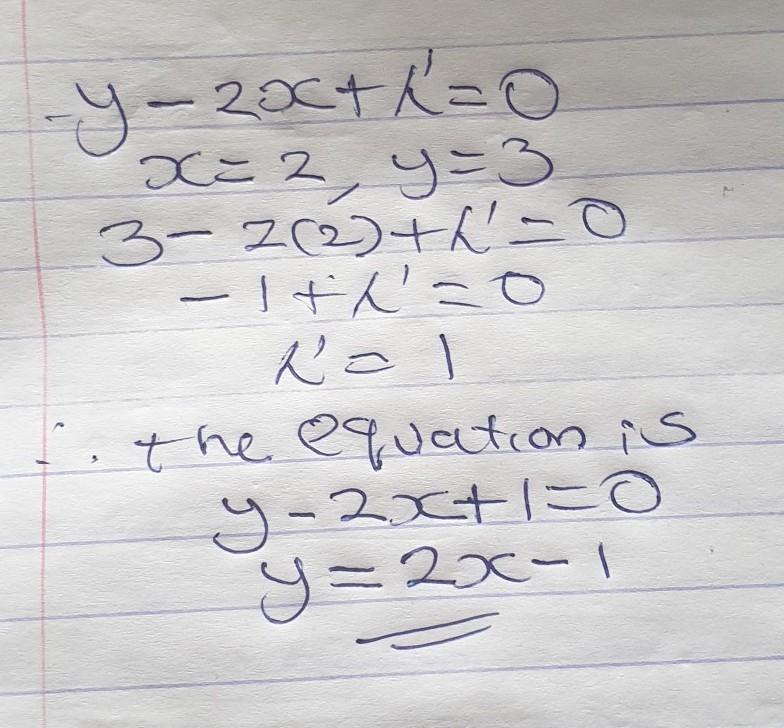 y - 2x + k' = 0
x = 2, y = 3
3 - 2(2) + k' = 0
- 1 + k' = 0
k' = 1
∴ the equation is
y - 2x + 1 = 0
y = 2x - 1